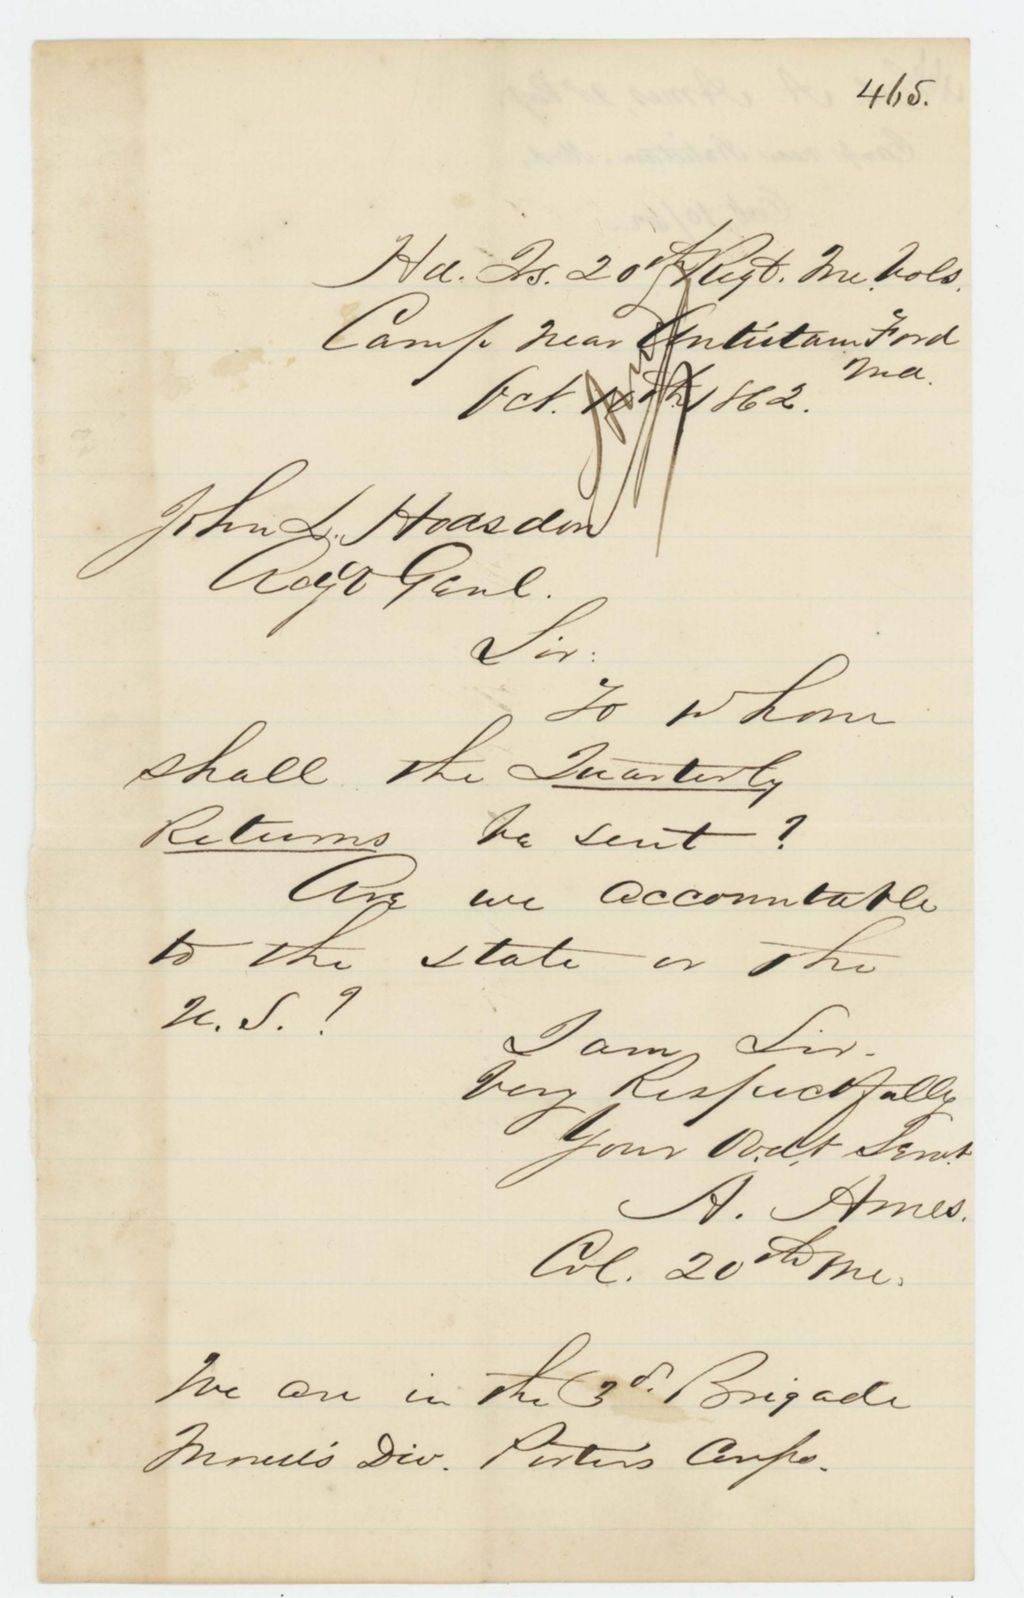 465.
Hd. Qs. 20th Regt. Me. Vols.
Camp near Antietam Ford
Md.
Oct. 10th 1862.
John L. Hodsdon
Adjt Genl.
Sir:
To whom
shall the Quarterly
Returns be sent?
Are we accountable
to the state or the
U.S.?
I am, Sir.
Very Respectfully
Your Obdt Servt
A. Ames.
Col. 20th Me.
We are in the 3d. Brigade
Morell's Div. Porter's Corps.